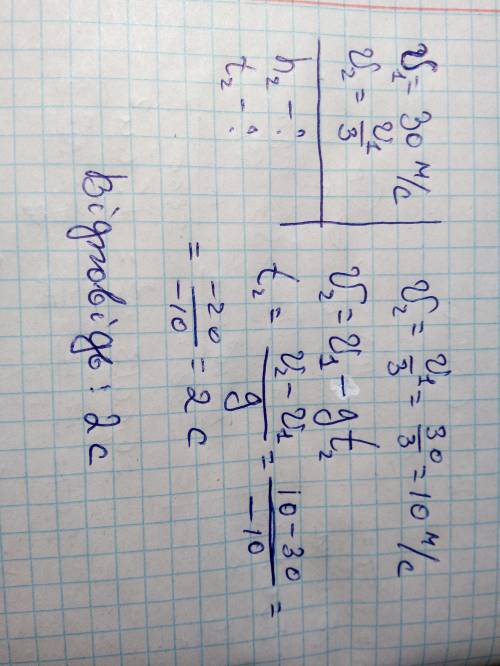 υ₁ = 30 м/с
υ₂ = υ₁/3
h₂ - ?
t₂ - ?
υ₂ = υ₁/3 = 30/3 = 10 м/с
υ₂ = υ₁ - gt₂
t₂ = (υ₂ - υ₁)/g = (10 - 30)/(-10) =
= -20/-10 = 2 с
Відповідь: 2 с